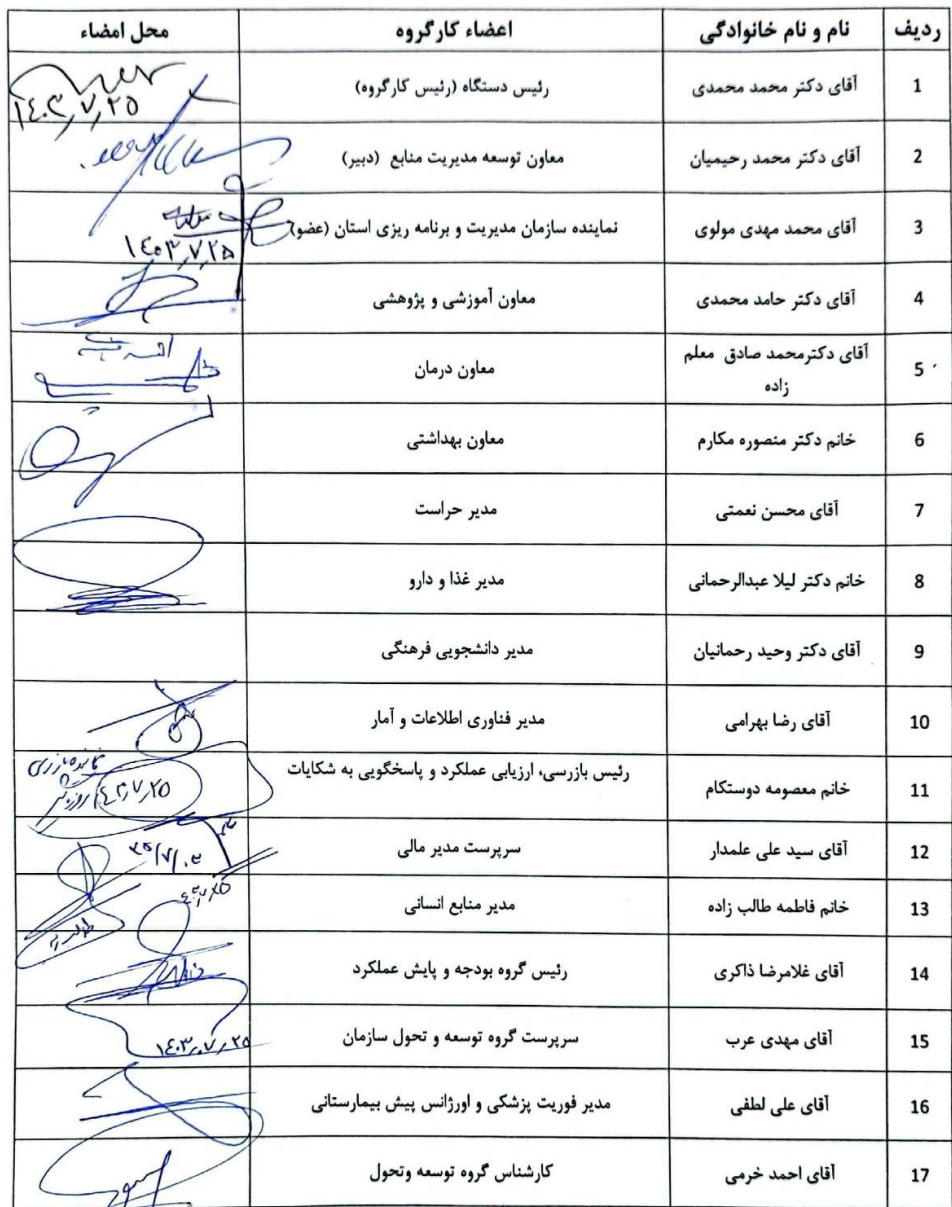 ردیف نام و نام خانوادگی اعضاء کارگروه محل امضاء
1 آقای دکتر محمد محمدی رئیس دستگاه (رئیس کارگروه) ۱۴۰۳,۷,۲۵
2 آقای دکتر محمد رحیمیان معاون توسعه مدیریت منابع (دبیر)
3 آقای محمد مهدی مولوی نماینده سازمان مدیریت و برنامه ریزی استان (عضو) ۱۴۰۳,۷,۲۵
4 آقای دکتر حامد محمدی معاون آموزشی و پژوهشی
5 آقای دکترمحمد صادق معلم زاده معاون درمان
6 خانم دکتر منصوره مکارم معاون بهداشتی
7 آقای محسن نعمتی مدیر حراست
8 خانم دکتر لیلا عبدالرحمانی مدیر غذا و دارو
9 آقای دکتر وحید رحمانیان مدیر دانشجویی فرهنگی
10 آقای رضا بهرامی مدیر فناوری اطلاعات و آمار
11 خانم معصومه دوستکام رئیس بازرسی، ارزیابی عملکرد و پاسخگویی به شکایات
12 آقای سید علی علمدار سرپرست مدیر مالی
13 خانم فاطمه طالب زاده مدیر منابع انسانی
14 آقای غلامرضا ذاکری رئیس گروه بودجه و پایش عملکرد
15 آقای مهدی عرب سرپرست گروه توسعه و تحول سازمان ۱۴۰۳,۷,۲۵
16 آقای علی لطفی مدیر فوریت پزشکی و اورژانس پیش بیمارستانی
17 آقای احمد خرمی کارشناس گروه توسعه وتحول